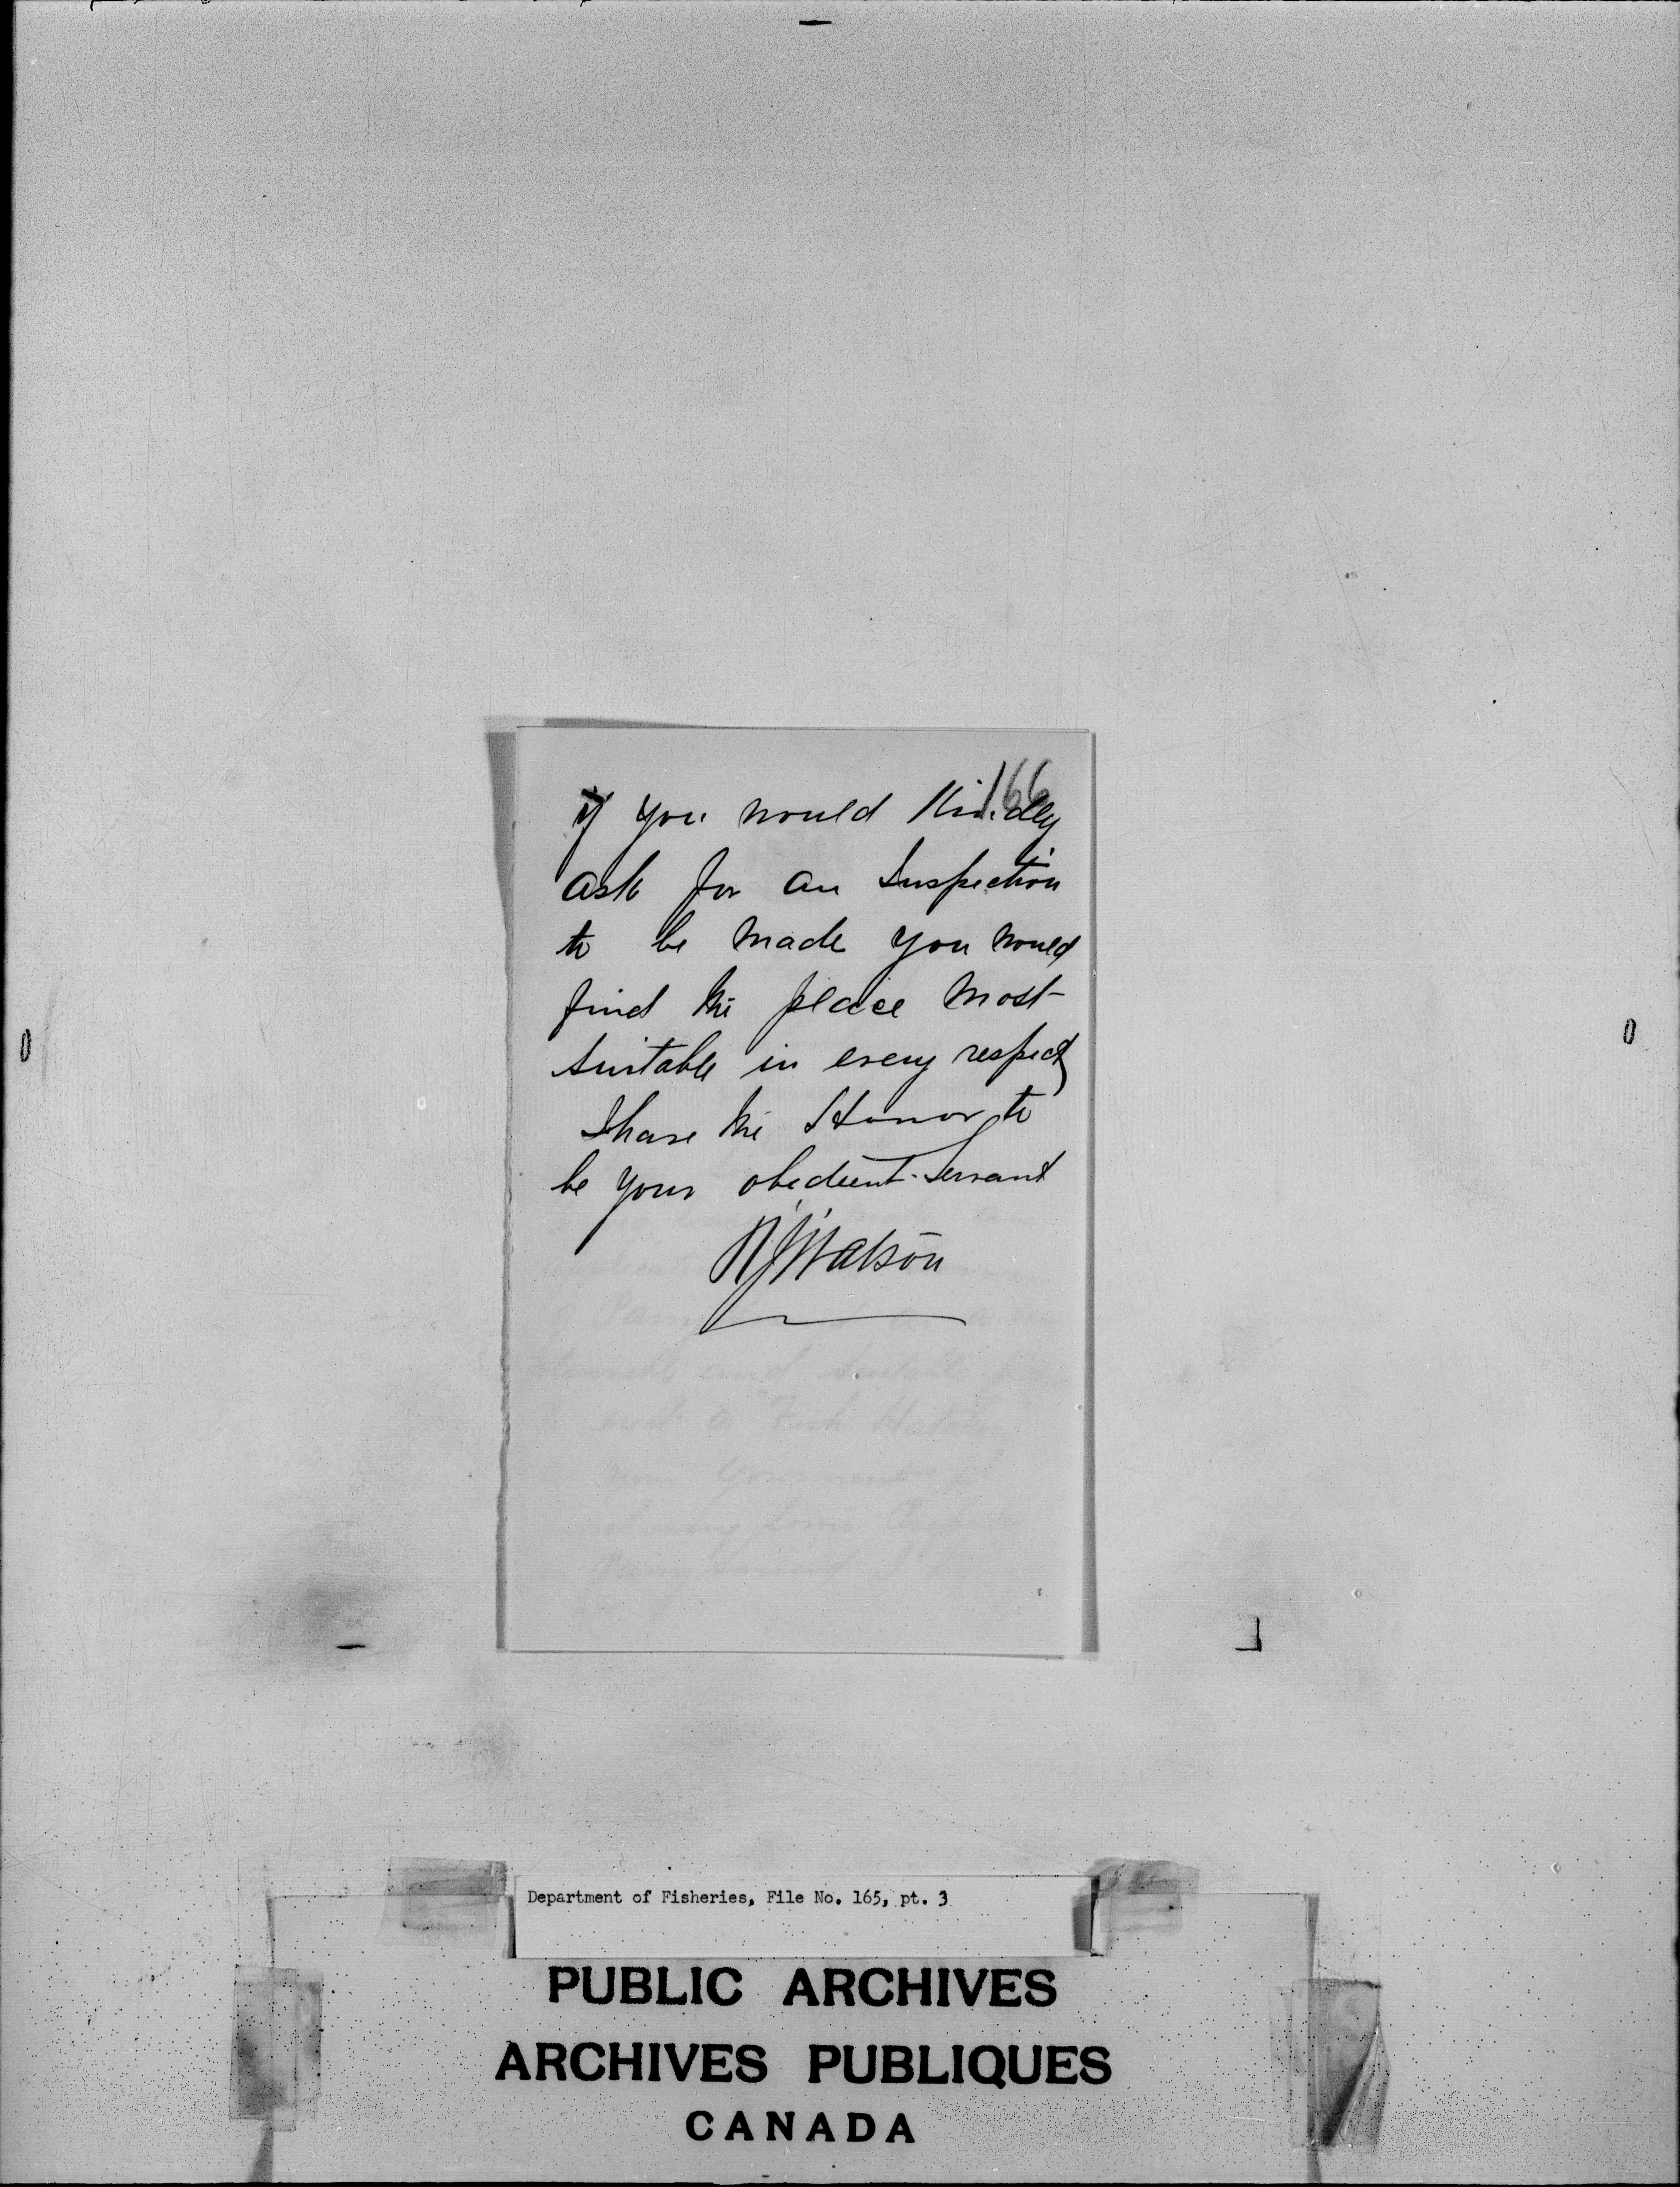 166
if you would Kindly
ask for an Inspection
to be made you would
find the place most
suitable in every respect
I have the Honor to
be your obedient Servant
R J Watson
and suitable
a Fish
your Government
some
Department of Fisheries, File No. 165, pt. 3
PUBLIC ARCHIVES
ARCHIVES PUBLIQUES
CANADA